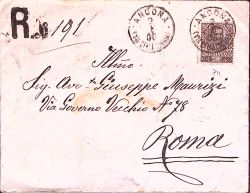 R. No 191
ANCONA
ANCONA
Illmo
Sig. Avv. Giuseppe Maurizi
Via Governo Vecchio No 78
Roma